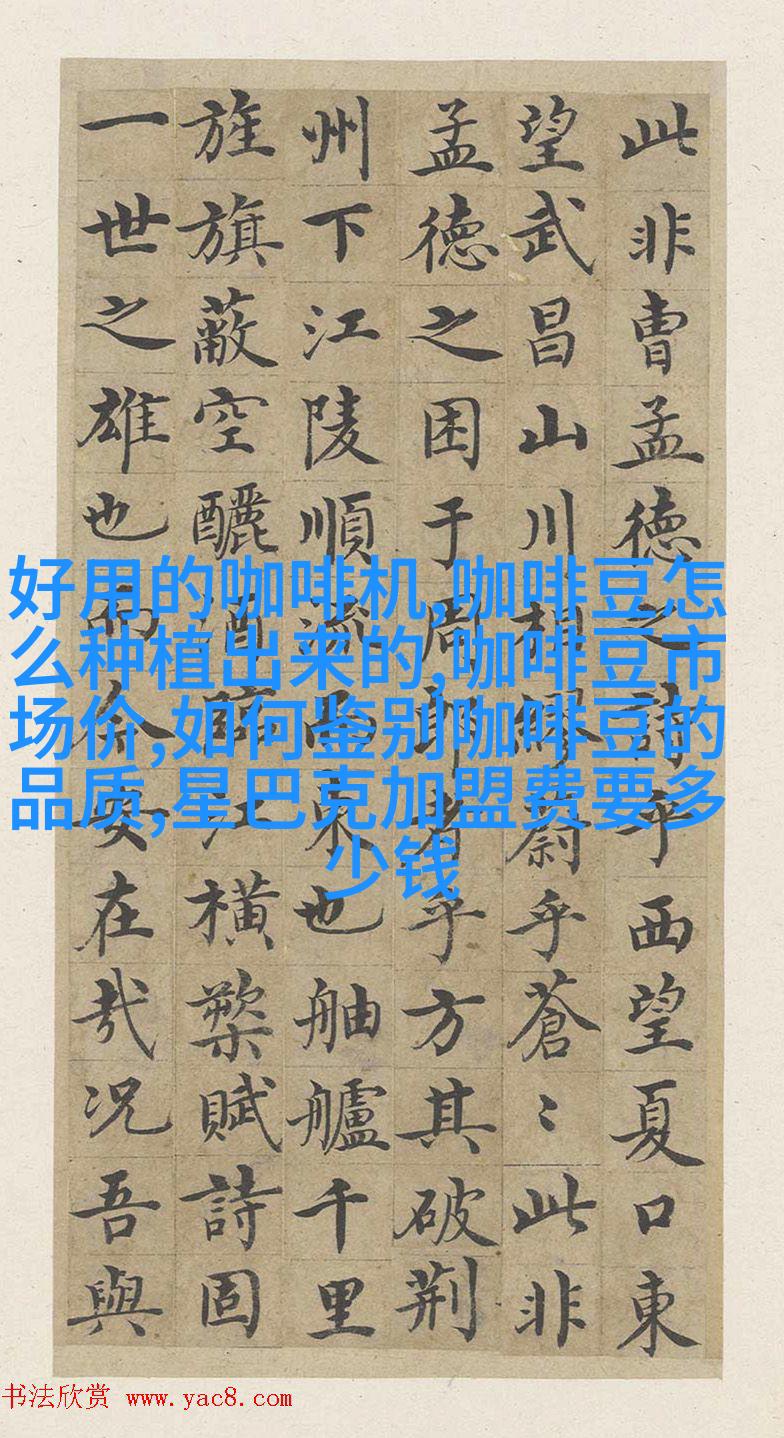 此非曹孟德之詩乎西望夏口東
望武昌山川相繆蔚乎蒼〻此非
孟德之困于周郎者乎方其破荆
州下江陵順流而東也舳艫千里
旌旗蔽空釃酒臨江横槊賦詩固
一世之雄也而今安在哉况吾與
好用的咖啡机,咖啡豆怎
么种植出来的,咖啡豆市
场价,如何鉴别咖啡豆的
品质,星巴克加盟费要多
少钱
书法欣赏 www.yac8.com